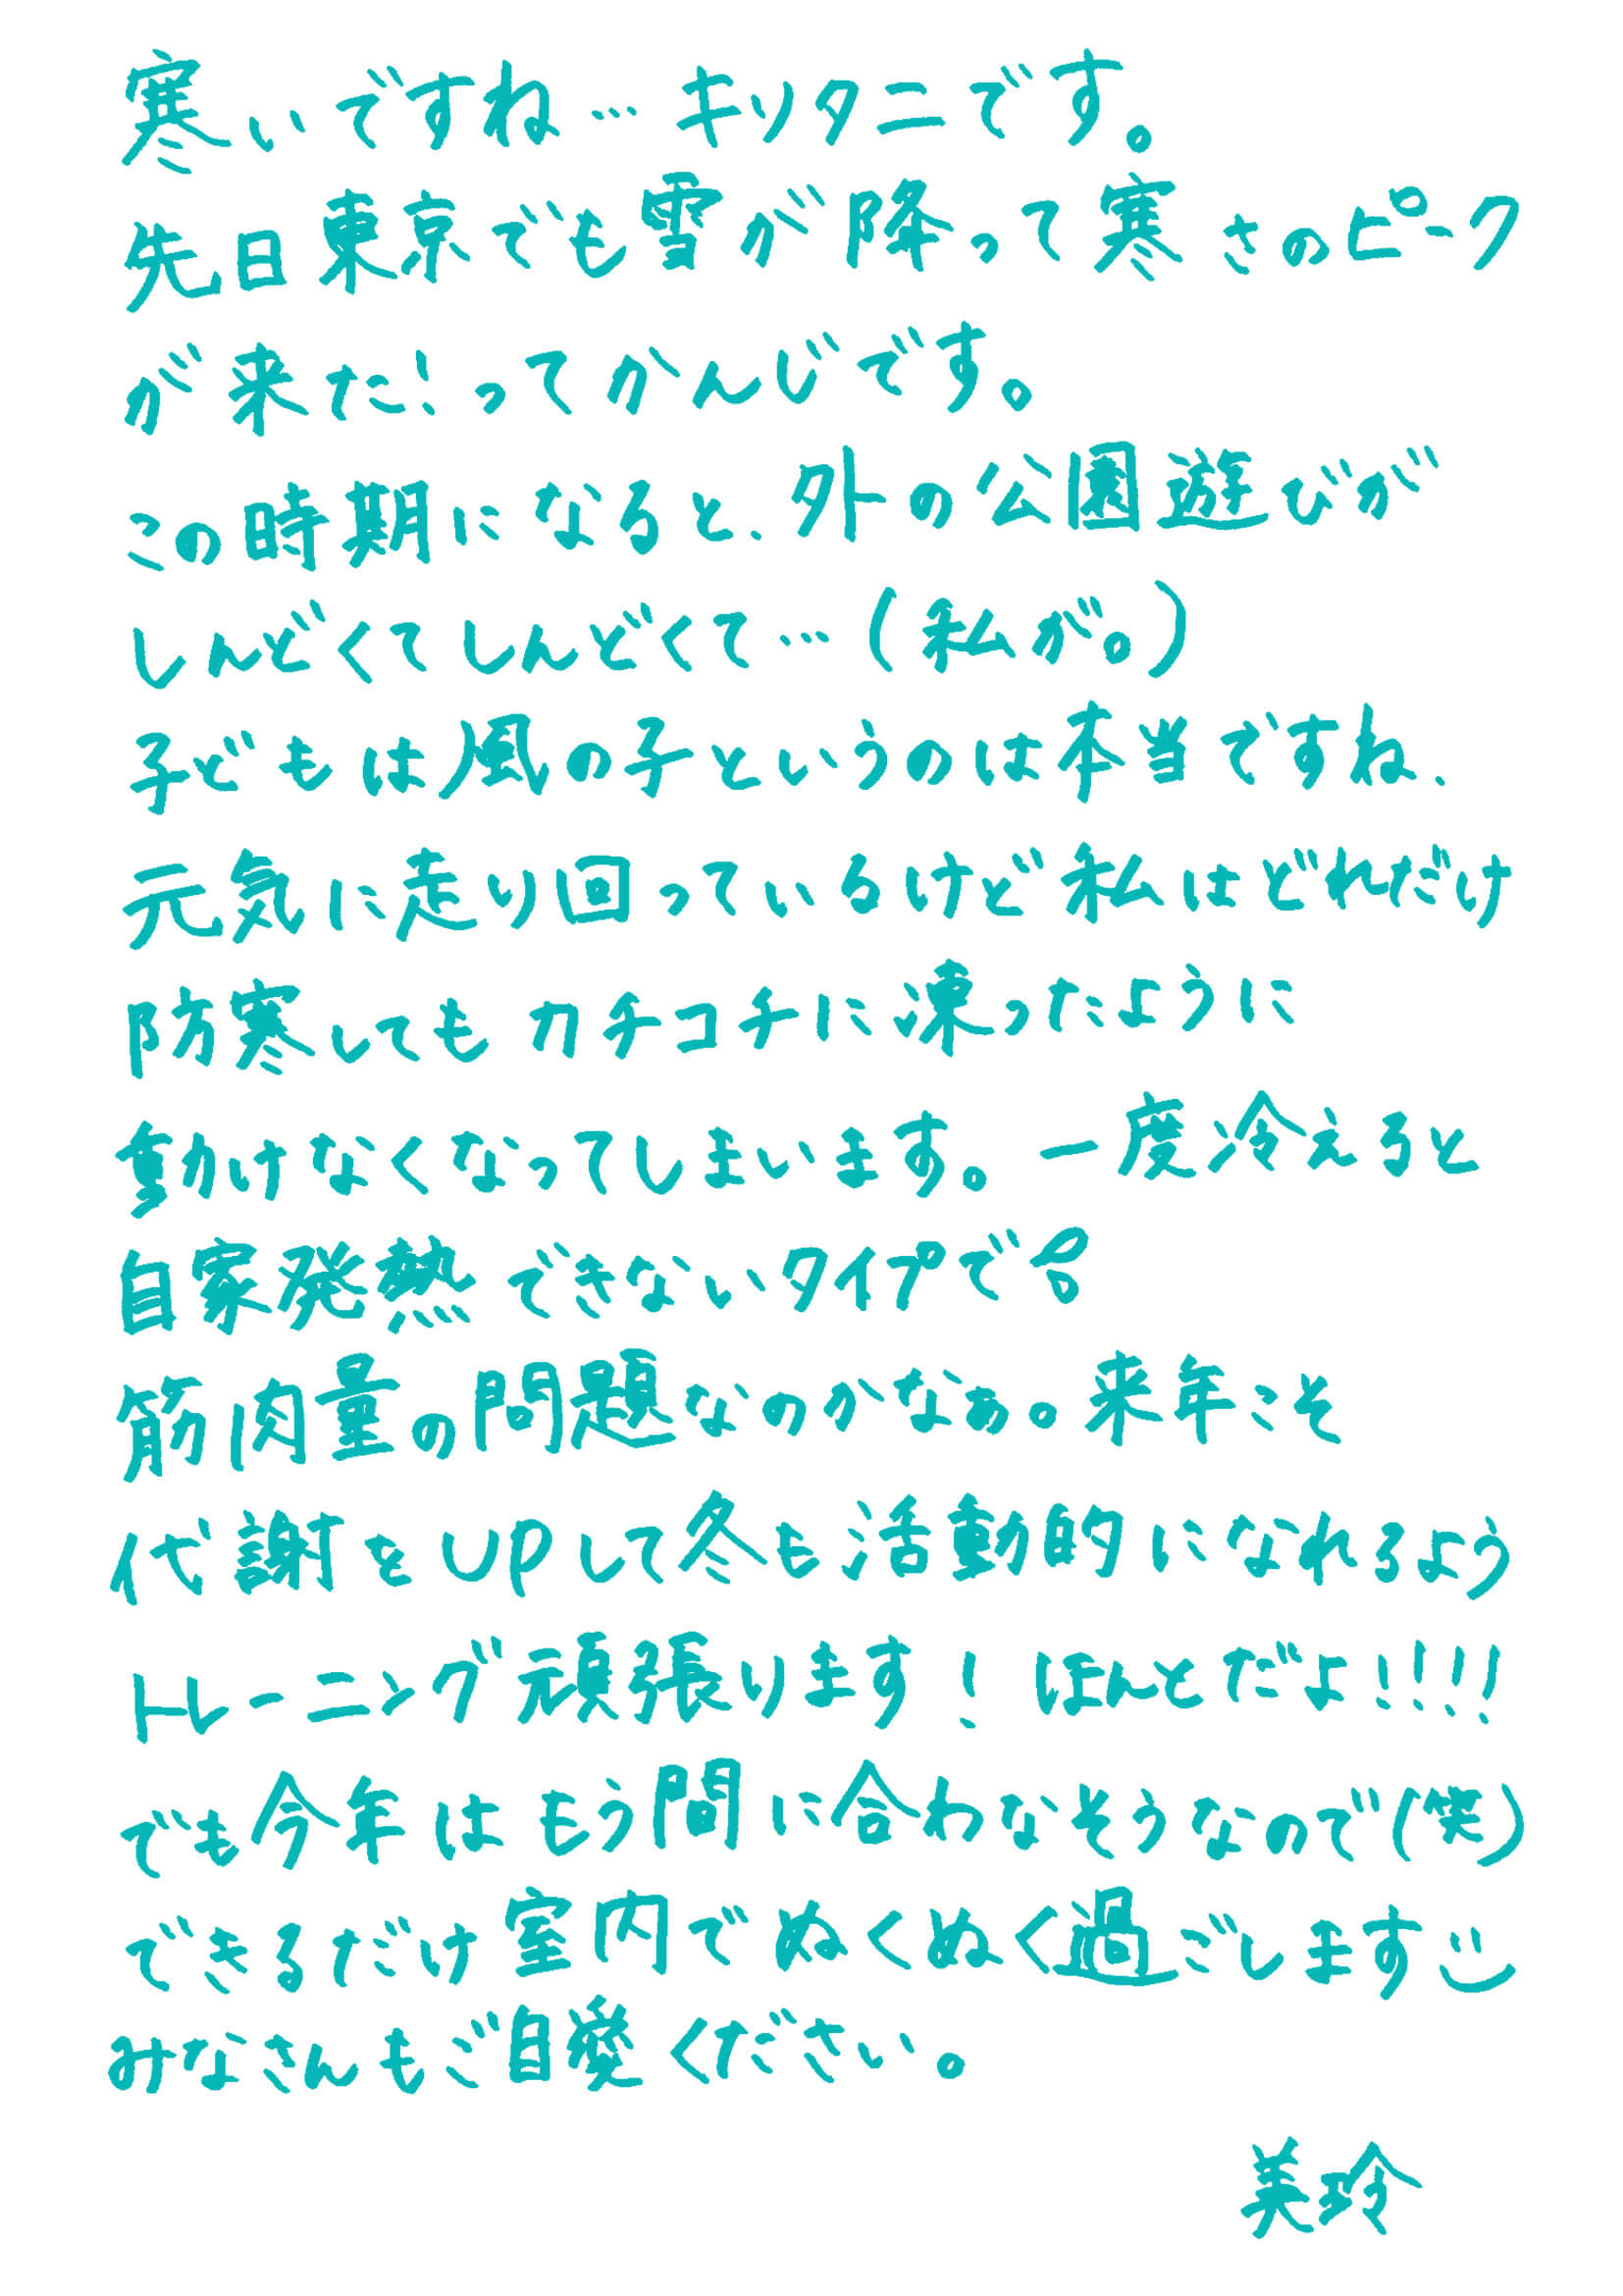 寒いですね… キリタニです。
先日東京でも雪が降って寒さのピーク
が来た！ってかんじです。
この時期になると、外の公園遊びが
しんどくてしんどくて…(私が。)
子どもは風の子というのは本当ですね、
元気に走り回っているけど私はどれだけ
防寒してもカチコチに凍ったように
動けなくなってしまいます。一度冷えると
自家発熱できないタイプで
筋肉量の問題なのかなぁ。来年こそ
代謝をUPして冬も活動的になれるよう
トレーニング頑張ります！ほんとだよ!!!!
でも今年はもう間に合わなそうなので(笑)
できるだけ室内でぬくぬく過ごします
みなさんもご自愛ください。
美玲